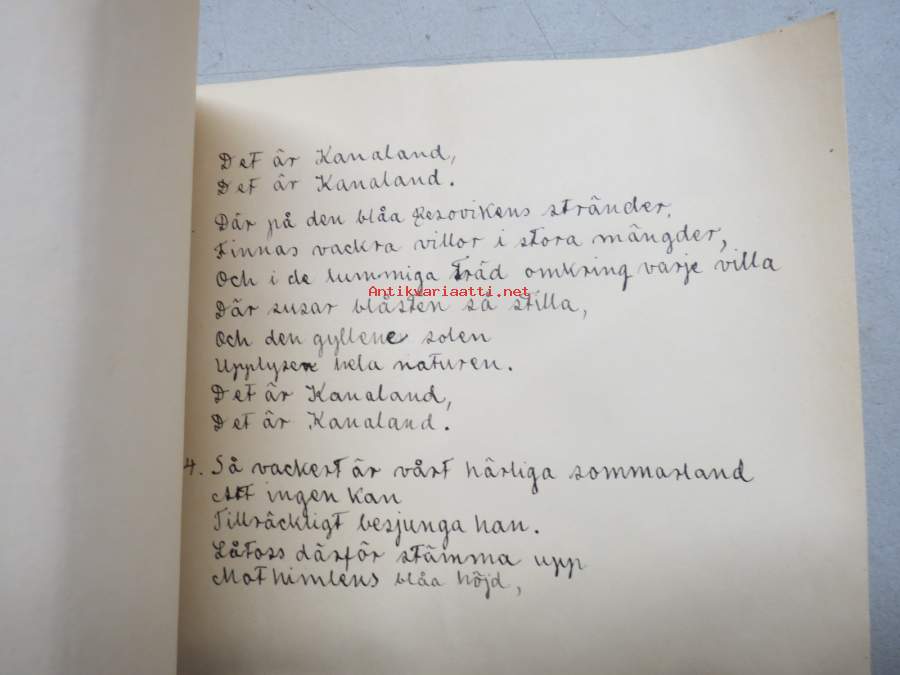 Det är Kanaland,
Det är Kanaland.
Där på den blåa Resovikens stränder,
Finnas vackra villor i stora mängder,
Och i de lummiga träd omkring varje villa
Antikvariaatti.net
Där susar blåsten så stilla,
Och den gyllene solen
Upplyser hela naturen.
Det är Kanaland,
Det är Kanaland.
4. Så vackert är vårt härliga sommarland
Att ingen kan
Tillräckligt besjunga han.
Låtoss därför stämma upp
Mot himlens blåa höjd,